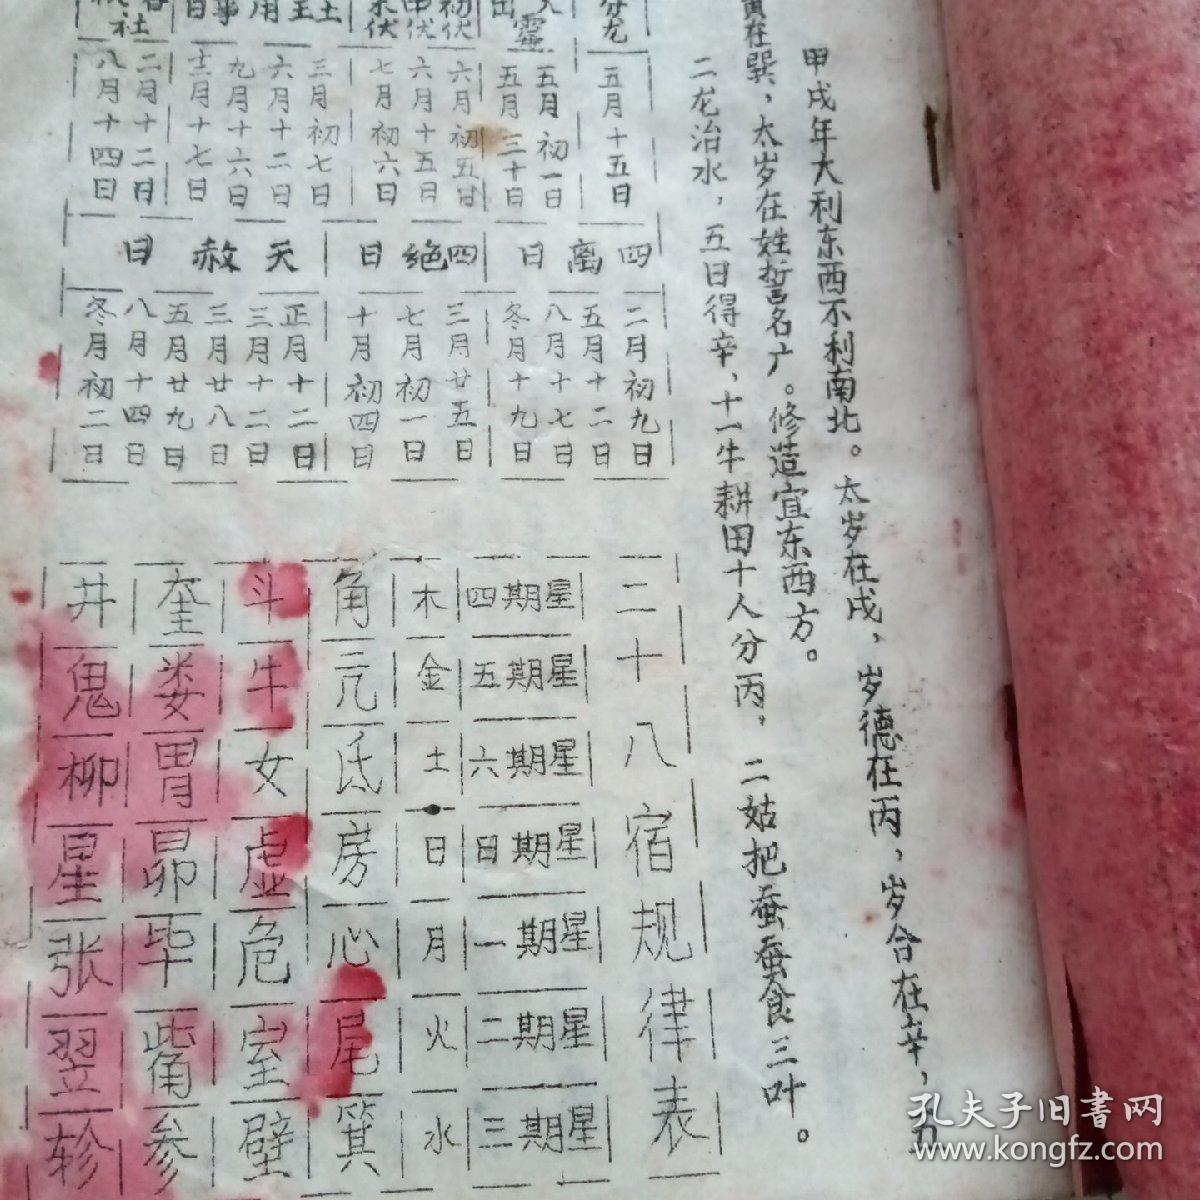 甲戌年大利东西不利南北。太岁在戌，岁德在丙，岁合在辛，
在巽，太岁在姓誓名广。修造宜东西方。
二龙治水，五日得辛，十一牛耕田十人分丙，二姑把蚕蚕食三叶。
分龙
五月十五日
出霉
五月初一日
五月三十日
初伏
中伏
末伏
六月初五日
六月十五日
七月初六日
土王用事日
三月初七日
六月十二日
九月十六日
十二月十七日
社
二月十二日
八月十四日
四离日
二月初九日
五月十二日
八月十七日
冬月十九日
四绝日
三月廿五日
七月初一日
十月初四日
天赦日
正月十二日
三月十二日
三月廿八日
五月廿九日
八月十四日
冬月初二日
二十八宿规律表
星期四 星期五 星期六 星期日 星期一 星期二 星期三
木 金 土 日 月 火 水
角 亢 氐 房 心 尾 箕
斗 牛 女 虚 危 室 壁
奎 娄 胃 昴 毕 觜 参
井 鬼 柳 星 张 翌 轸
孔夫子旧书网
www.kongfz.com